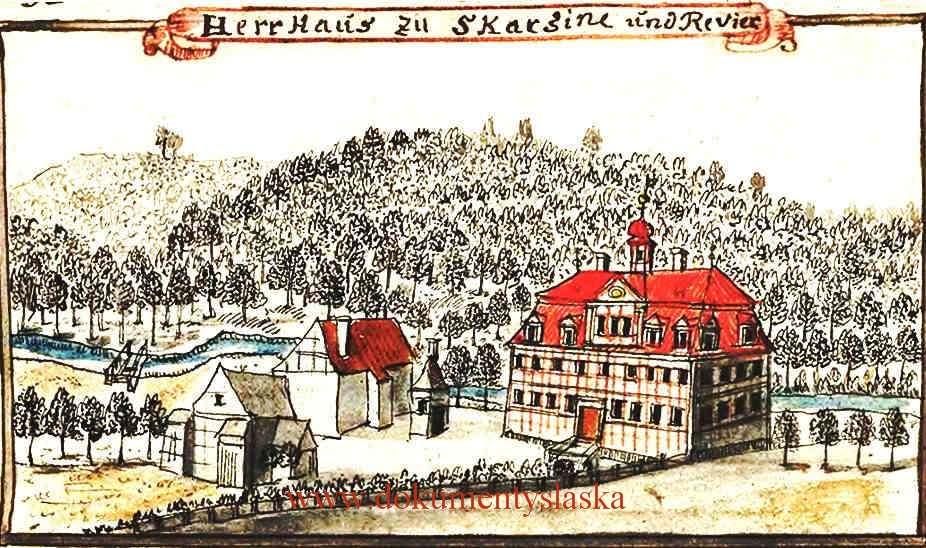 HerrHaus zu Skarsine und Revier
www.dokumentyslaska